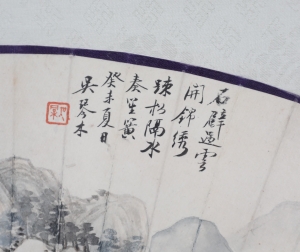 石壁過雲
開錦绣
疎松隔水
奏笙簧
癸未夏日
吴琴木